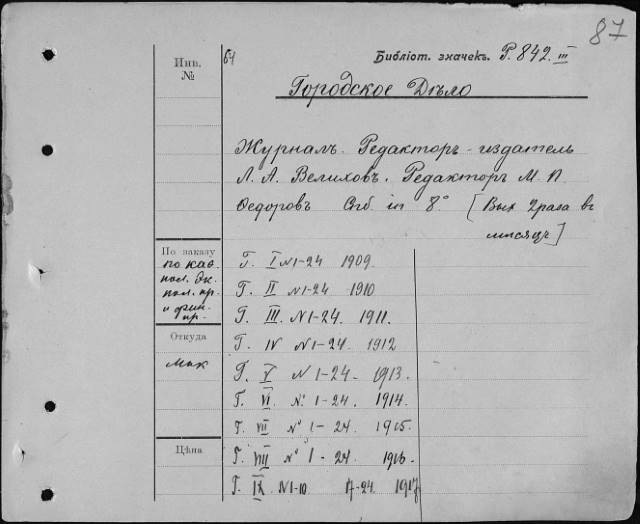 87
Инв. №
64
Библіот. значекъ. Р. 842. III
Городское Дѣло
Журналъ. Редакторъ-издатель
Л. А. Велиховъ. Редакторъ М. П.
Ѳедоровъ Спб in 8° [Вых 2 раза въ
мѣсяцъ]
По заказу
по кав.
пол. эк.
пол. пр.
и фин.
пр.
Г. I N 1-24 1909.
Г. II N 1-24 1910
Г. III. N 1-24. 1911.
Откуда
Г. IV N 1-24. 1912
Г. V N 1-24. 1913.
Г. VI № 1-24. 1914.
Г. VII № 1-24. 1915.
Цѣна
Г. VIII № 1-24 1916.
Г. IX N 1-10 17-24. 1917